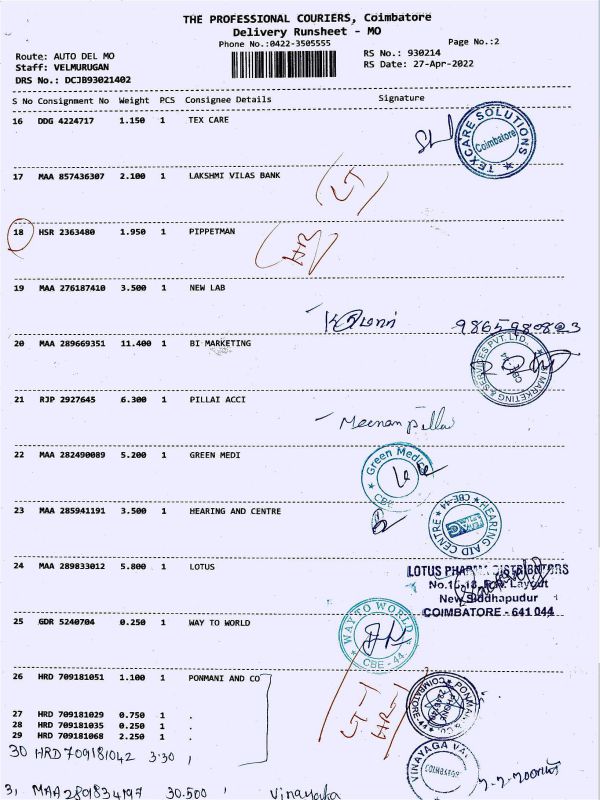 THE PROFESSIONAL COURIERS, Coimbatore
Delivery Runsheet - MO
Phone No.:0422-3505555
Page No.:2
Route: AUTO DEL MO
RS No.: 930214
Staff: VELMURUGAN
RS Date: 27-Apr-2022
DRS No.: DCJB93021402
S No Consignment No Weight PCS Consignee Details Signature
16 DDG 4224717 1.150 1 TEX CARE
TEXCARE SOLUTIONS
Coimbatore
17 MAA 857436307 2.100 1 LAKSHMI VILAS BANK
LT
18 HSR 2363480 1.950 1 PIPPETMAN
HR
19 MAA 276187410 3.500 1 NEW LAB
9865980823
20 MAA 289669351 11.400 1 BI MARKETING
BI MARKETING & SERVICES PVT. LTD.
21 RJP 2927645 6.300 1 PILLAI ACCI
Meenam pillai
22 MAA 282490089 5.200 1 GREEN MEDI
Green Medic
CBE
23 MAA 285941191 3.500 1 HEARING AND CENTRE
HEARING AID CENTRE
CBE-44
24 MAA 289833012 5.800 1 LOTUS
LOTUS PHARMA DISTRIBUTORS
Layout
New Siddhapudur
COIMBATORE - 641 044
25 GDR 5240704 0.250 1 WAY TO WORLD
WAY TO WORLD
CBE - 44
26 HRD 709181051 1.100 1 PONMANI AND CO
PONMANI & CO
COIMBATORE-44
27 HRD 709181029 0.750 1 .
28 HRD 709181035 0.250 1 .
29 HRD 709181068 2.250 1 .
LT-1
HR-1
30 HRD 709181042 3.30 1
VINAYAGA
COIMBATORE
3, MAA 2801834197 30.500 1 Vinayaka